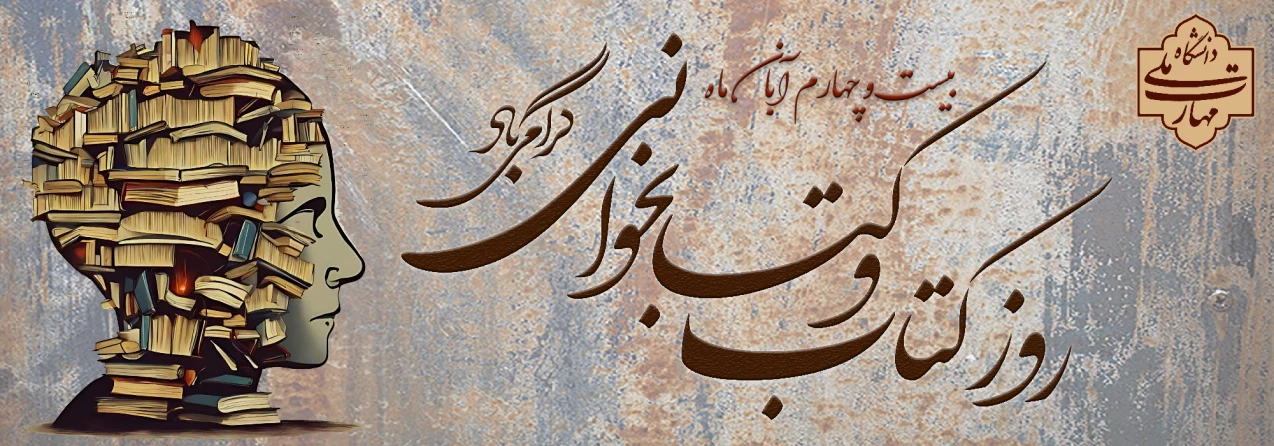 بیست و چهارم آبان ماه
روز کتاب و کتابخوانی
گرامی باد
دانشگاه
ملی
مهارت